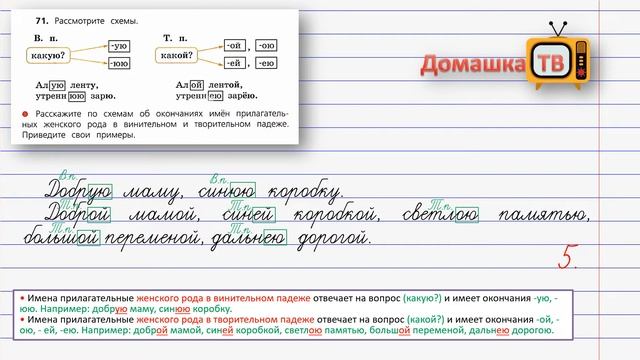 71. Рассмотрите схемы.
В. п. Т. п.
какую? -ую -юю какой? -ой, -ою -ей, -ею
Алую ленту, Алой лентой,
утреннюю зарю. утреннею зарёю.
Расскажите по схемам об окончаниях имён прилагатель-
ных женского рода в винительном и творительном падеже.
Приведите свои примеры.
Домашка ТВ
В.п. В.п.
Добрую маму, синюю коробку.
Т.п. Т.п. Т.п.
Доброй мамой, синей коробкой, светлою памятью,
Т.п. Т.п.
большой переменой, дальнею дорогой.
5.
• Имена прилагательные женского рода в винительном падеже отвечает на вопрос (какую?) и имеет окончания -ую, -
юю. Например: добрую маму, синюю коробку.
• Имена прилагательные женского рода в творительном падеже отвечает на вопрос (какой?) и имеет окончания -ой, -
ою, - ей, -ею. Например: доброй мамой, синей коробкой, светлою памятью, большой переменой, дальнею дорогою.